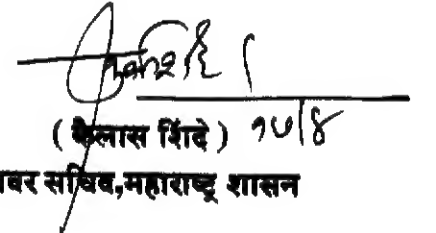 ( कैलास शिंदे ) १७/४
वर सचिव,महाराष्ट्र शासन